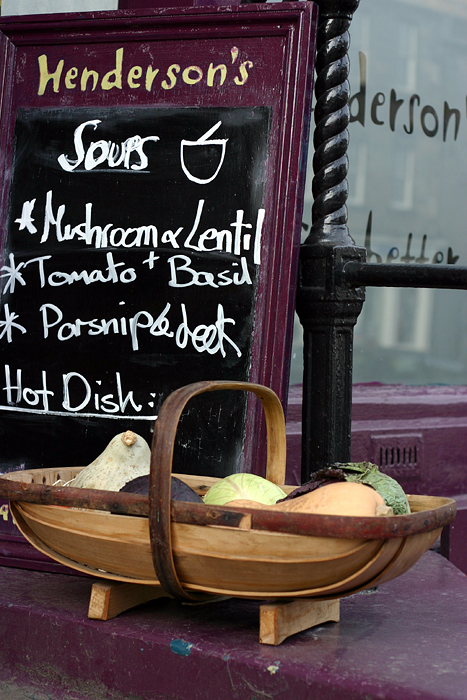 Henderson's
Soups
*Mushroom & Lentil
*Tomato + Basil
*Parsnip & Leek
Hot Dish:
derson's
better